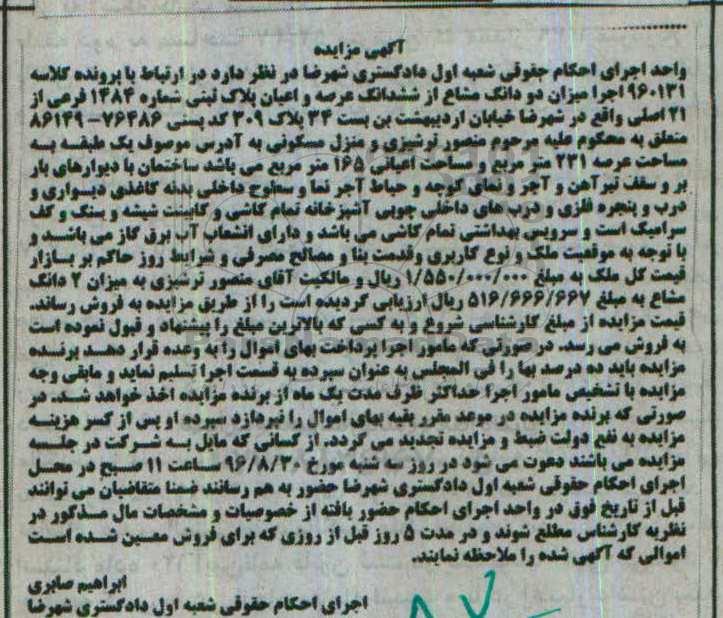 آگهی مزایده
واحد اجرای احکام حقوقی شعبه اول دادگستری شهرضا در نظر دارد در ارتباط با پرونده کلاسه
۹۶۰۱۳۱ اجرا میزان دو دانگ مشاع از ششدانگ عرصه و اعیان پلاک ثبتی شماره ۱۴۸۴ فرعی از
۲۱ اصلی واقع در شهرضا خیابان اردیبهشت بن بست ۳۴ پلاک ۳۰۹ کد پستی ۷۶۴۸۶-۸۶۱۴۹
متعلق به محکوم علیه مرحوم منصور ترشیزی و منزل مسکونی به آدرس موصوف یک طبقه به
مساحت عرصه ۲۳۱ متر مربع و مساحت اعیانی ۱۶۵ متر مربع می باشد ساختمان با دیوارهای بار
بر و سقف تیرآهن و آجر و نمای کوچه و حیاط آجر نما و سطوح داخلی بدنه کاغذی دیواری و
درب و پنجره فلزی و درب های داخلی چوبی آشپزخانه تمام کاشی و کابینت شیشه و سنگ و کف
سرامیک است و سرویس بهداشتی تمام کاشی می باشد و دارای انشعاب آب برق گاز می باشد و
با توجه به موقعیت ملک و نوع کاربری وقدمت بنا و مصالح مصرفی و شرایط روز حاکم بر بازار
قیمت کل ملک به مبلغ ۱/۵۵۰/۰۰۰/۰۰۰ ریال و مالکیت آقای منصور ترشیزی به میزان ۲ دانگ
مشاع به مبلغ ۵۱۶/۶۶۶/۶۶۷ ریال ارزیابی گردیده است را از طریق مزایده به فروش رساند.
قیمت مزایده از مبلغ کارشناسی شروع و به کسی که بالاترین مبلغ را پیشنهاد و قبول نموده است
به فروش می رسد. در صورتی که مامور اجرا پرداخت بهای اموال را به وعده قرار دهد برنده
مزایده باید ده درصد بها را فی المجلس به عنوان سپرده به قسمت اجرا تسلیم نماید و مابقی وجه
مزایده با تشخیص مامور اجرا حداکثر ظرف مدت یک ماه از برنده مزایده اخذ خواهد شد. در
صورتی که برنده مزایده در موعد مقرر بقیه بهای اموال را نپردازد سپرده او پس از کسر هزینه
مزایده به نفع دولت ضبط و مزایده تجدید می گردد. از کسانی که مایل به شرکت در جلسه
مزایده می باشند دعوت می شود در روز سه شنبه مورخ ۹۶/۸/۳۰ ساعت ۱۱ صبح در محل
اجرای احکام حقوقی شعبه اول دادگستری شهرضا حضور به هم رسانند ضمنا متقاضیان می توانند
قبل از تاریخ فوق در واحد اجرای احکام حضور یافته از خصوصیات و مشخصات مال مذکور در
نظریه کارشناس مطلع شوند و در مدت ۵ روز قبل از روزی که برای فروش معین شده است
اموالی که آگهی شده را ملاحظه نمایند.
ابراهیم صابری
اجرای احکام حقوقی شعبه اول دادگستری شهرضا